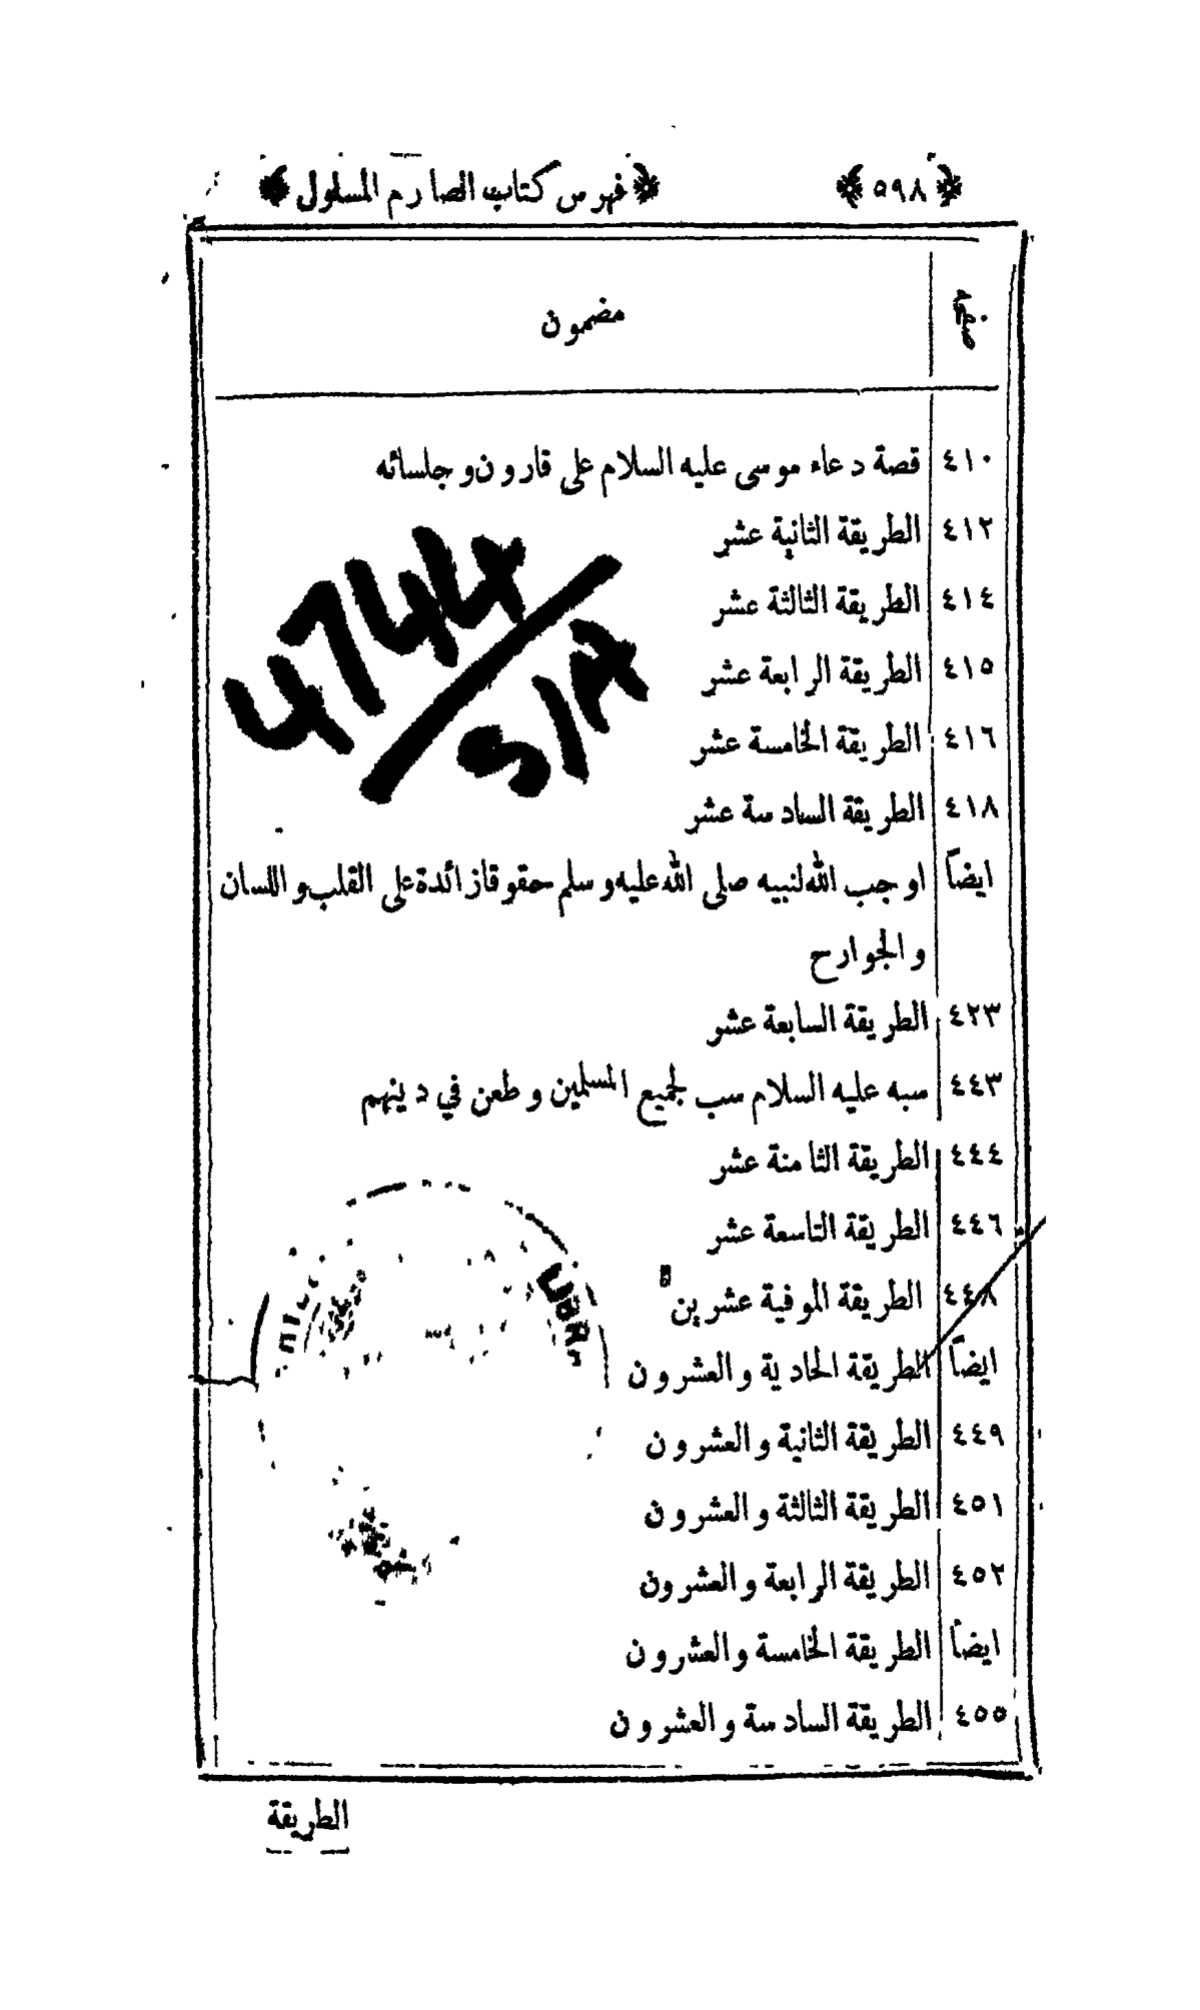 ﴿٥٩٨﴾ ﴿فهرس كتاب الصارم المسلول﴾
صفحه مضمون
٤١٠ قصة دعاء موسى عليه السلام على قارون وجلسائه
٤١٢ الطريقة الثانية عشر
٤١٤ الطريقة الثالثة عشر
٤١٥ الطريقة الرابعة عشر
٤١٦ الطريقة الخامسة عشر
٤١٨ الطريقة السادسة عشر
ايضاً اوجب الله لنبيه صلى الله عليه وسلم حقوقا زائدة على القلب واللسان
والجوارح
٤٢٣ الطريقة السابعة عشر
٤٤٣ سبه عليه السلام سب لجميع المسلمين وطعن في دينهم
٤٤٤ الطريقة الثامنة عشر
٤٤٦ الطريقة التاسعة عشر
٤٤٨ الطريقة الموفية عشرين
ايضاً الطريقة الحادية والعشرون
٤٤٩ الطريقة الثانية والعشرون
٤٥١ الطريقة الثالثة والعشرون
٤٥٢ الطريقة الرابعة والعشرون
ايضاً الطريقة الخامسة والعشرون
٤٥٥ الطريقة السادسة والعشرون
الطريقة
4744
S/A